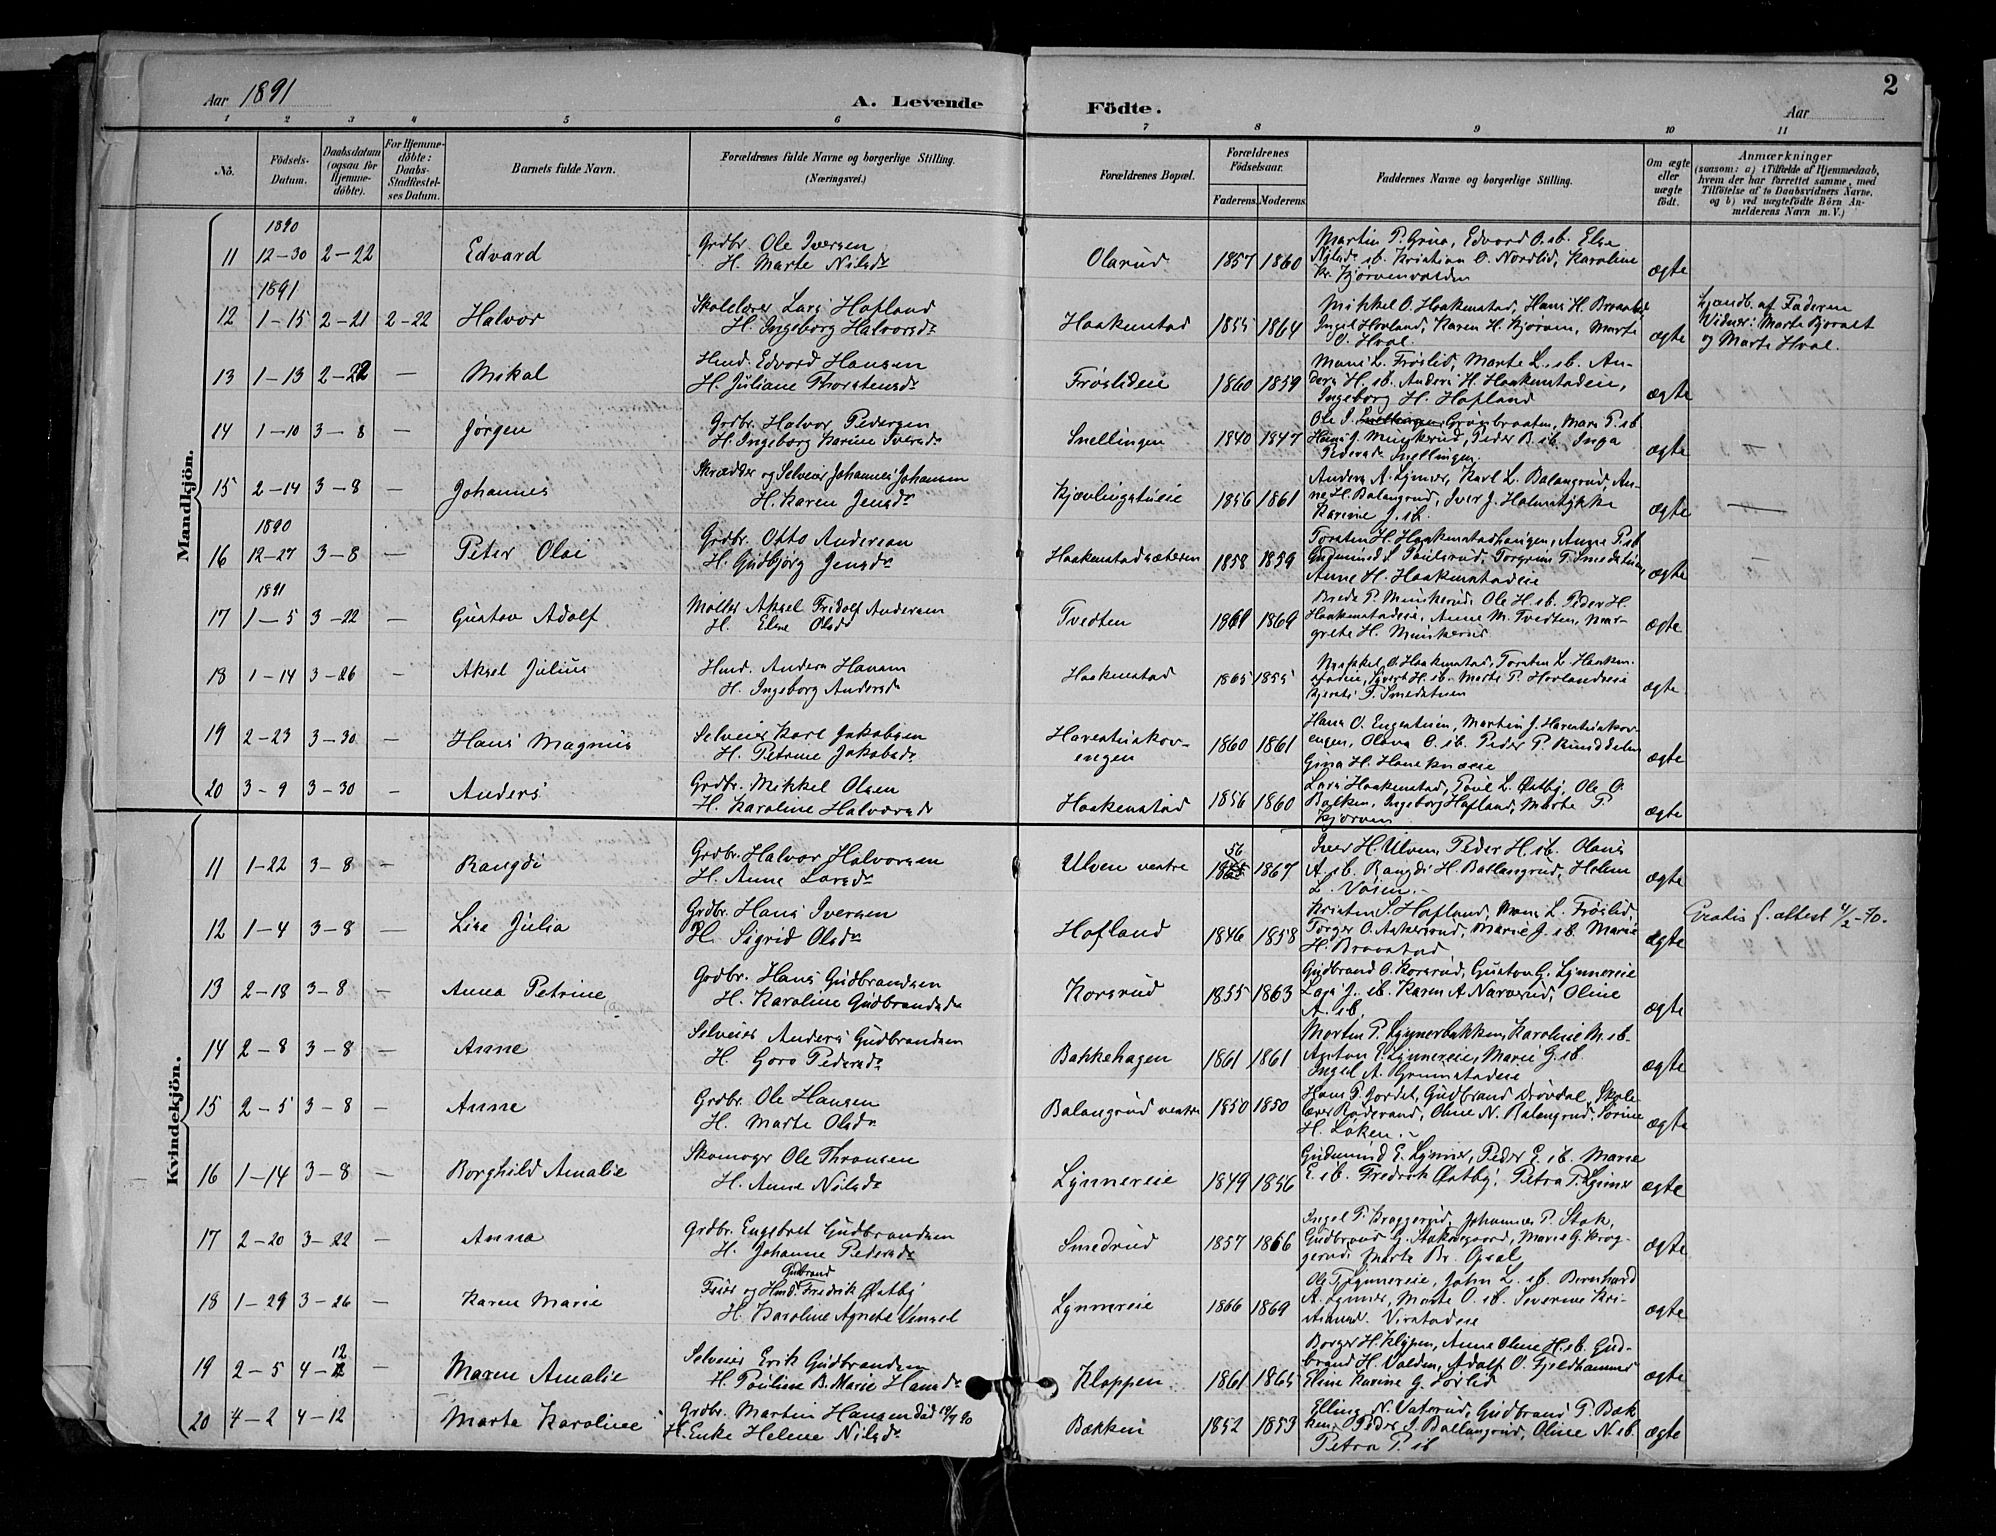 Aar 1891
A. Levende
Födte.
Aar
2
1 2 3 4 5 6 7 8 9 10 11
No.
Födsels-Datum.
Daabsdatum (ogsaa for Hjemme-döbte).
For Hjemme-döbte: Daabs-Stadfæstel-ses Datum.
Barnets fulde Navn.
Forældrenes fulde Navne og borgerlige Stilling. (Næringsvei.)
Forældrenes Bopæl.
Forældrenes Födselsaar.
Faderens. Moderens.
Faddernes Navne og borgerlige Stilling.
Om ægte eller uægte födt.
Anmærkninger
(saasom: a) i Tilfælde af Hjemmedaab, hvem der har forrettet samme, med Tilföielse af to Daabsvidners Navne, og b) ved uægtefödte Börn An-melderens Navn m. V.)
Mandkjön.
1890
11 12-30 2-22 Edvard Grdbr. Ole Iversen
H. Marte Nilsdr Olarud 1857 1860 Martin P. Grua, Edvard O. sb. Else
Nilsdr sb. Kristian O. Nordlid, Karoline ægte
1891
12 1-15 2-21 2-22 Halvor Skolelærer Lars Hofland
H. Ingeborg Halvorsdr Haakenstad 1855 1864 Mikkel O. Haakenstad, Hans H. Braastad
Ingel Hovland, Karen H. Kjørven, Marte
O. Hval. ægte
Hjemdb. af Faderen
Vidner: Marte Bjoralt
og Marte Hval.
13 1-13 2-22 — Mikal Hmd. Edvard Hansen
H. Juliane Thorstensdr Frøslideie 1860 1859 Hans L. Frøslid, Marte L. sb. An-
ders H. sb. Anders H. Haakenstadeie,
Ingeborg H. Hofland ægte
14 1-10 3-8 — Jørgen Grdbr. Halvor Pedersen
H. Ingeborg Karine Iversdr Snellingen 1840 1847 Ole I. Grønbraaten, Mari P. sb
Hans J. Munkerud, Peder B. sb. Inga
Pedersdr Snellingen. ægte
15 2-14 3-8 — Johannes Skrædder og Selveier Johannes Johansen
H. Karen Jensdr Kjævlingstueie 1856 1861 Anders A. Lynner, Karl L. Balangrud, An-
ne H. Balangrud, Iver J. Holmstykke
Karine J. sb. ægte —
1890
16 12-27 3-8 — Peter Olai Grdbr. Otto Andersen
H. Gudbjørg Jensdr Haakenstadsæteren 1858 1859 Torsten H. Haakenstadhaugen, Anne P. sb
Gudmund L. Paulsrud, Torgrim T. Smedstuen,
Anne H. Haakenstadeie ægte
1891
17 1-5 3-22 — Gustav Adolf Møller Aksel Fridolf Andersen
H. Else Olsdr Tvedten 1869 1869 Brede P. Munkerud, Ole H. sb. Peder H.
Haakenstadeie, Anne M. Tvedten, Mar-
grete H. Munkerud ægte
18 1-14 3-26 — Aksel Julius Hmd. Anders Hansen
H. Ingeborg Andersdr Haakenstad 1865 1855 Mikkel O. Haakenstad, Torsten L. Haaken-
stadeie, Sivert H. sb. Marte P. Hovlandseie
Kjersti T. Smedstuen ægte
19 2-23 3-30 — Hans Magnus Selveier Karl Jakobsen
H. Petrine Jakobsdr Harestuskov-
engen 1860 1861 Hans O. Engestuen, Martin J. Harestuskov-
engen, Olava O. sb. Peder P. Runddelen
Gina H. Haneknæeie ægte
20 3-9 3-30 - Anders Grdbr. Mikkel Olsen
H. Karoline Halvorsdr Haakenstad 1856 1860 Lars Haakenstad, Poul L. Østby, Ole O.
Balken, Ingeborg Hofland, Marte P.
Kjørven ægte
Kvindekjön.
11 1-22 3-8 — Rangdi Grdbr. Halvor Halvorsen
H. Anne Larsdr Ulven vestre 56 1867 Iver H. Ulven, Peder H. sb. Olaus
A. sb. Rangdi H. Ballangrud, Helene
L. Vøien. ægte
12 1-4 3-8 — Lise Julia Grdbr. Hans Iversen
H. Sigrid Olsdr Hofland 1846 1858 Kristen S. Hofland, Hans L. Frøslid,
Torger O. Askersrud, Marie J. sb. Marie
H. Braastad ægte Gratis f. attest 4/2-40.
13 2-18 3-8 — Anna Petrine Grdbr. Hans Gudbrandsen
H. Karoline Gudbrandsdr Korsrud 1855 1863 Gudbrand O. Korsrud, Gustav G. Lynnereie
Lars J. sb. Karen A. Narverud, Oline
A. sb. ægte
14 2-8 3-8 — Anne Selveier Anders Gudbrandsen
H. Goro Pedersdr Bakkehagen 1861 1861 Martin P. Lynnerbakken, Karoline M. sb.
Anton E. Lynnereie, Marie G. sb.
Ingel A. Grinnstadeie ægte
15 2-5 3-8 — Anne Grdbr. Ole Hansen
H. Marte Olsdr Balangrud vestre 1850 1850 Hans P. Jordet, Gudbrand Drøvdal, Skole-
lærer Røderand, Oline N. Balangrud, Sorine
H. Løken. ægte
16 1-14 3-8 — Borghild Amalie Skomager Ole Thronsen
H. Anne Nilsdr Lynnereie 1849 1856 Gudmund E. Lynner, Peder E. sb. Marie
E. sb. Fredrik Østby, Petra P. Lynner ægte
17 2-20 3-22 — Anna Grdbr. Engebret Gudbrandsen
H. Johanne Pedersdr Smedrud 1857 1866 Ingel P. Braggerud, Johannes P. Stok,
Gudbrand G. Stoksgaard, Marie G. Brag-
gerud, Marte Br. Opsal ægte
18 1-29 3-26 — Karen Marie Feier og Hmd. Gudbrand Fredrik Østby
H. Karoline Agnete Vensel Lynnereie 1866 1869 Ole T. Lynnereie, John L. sb. Bernhard
A. Lynner, Marte O. sb. Severine Kri-
stiansd. Virstadeie ægte
19 2-5 4-12 — Maren Amalie Selveier Erik Gudbrandsen
H. Pauline B. Marie Hansdr Kloppen 1861 1865 Borger H. Klypen, Anne Oline H. sb. Gud-
brand H. Volden, Adolf O. Fjeldhammer
Eline Karine G. Sørlid ægte
20 4-2 4-12 Marta Karoline Grdbr. Martin Hansen død 19/9 90
H. Enke Helene Nilsdr Bækken 1852 1853 Elling N. Vaterud, Gudbrand P. Bæk
ken, Peder J. Ballangrud, Oline N. sb.
Petra P. sb ægte